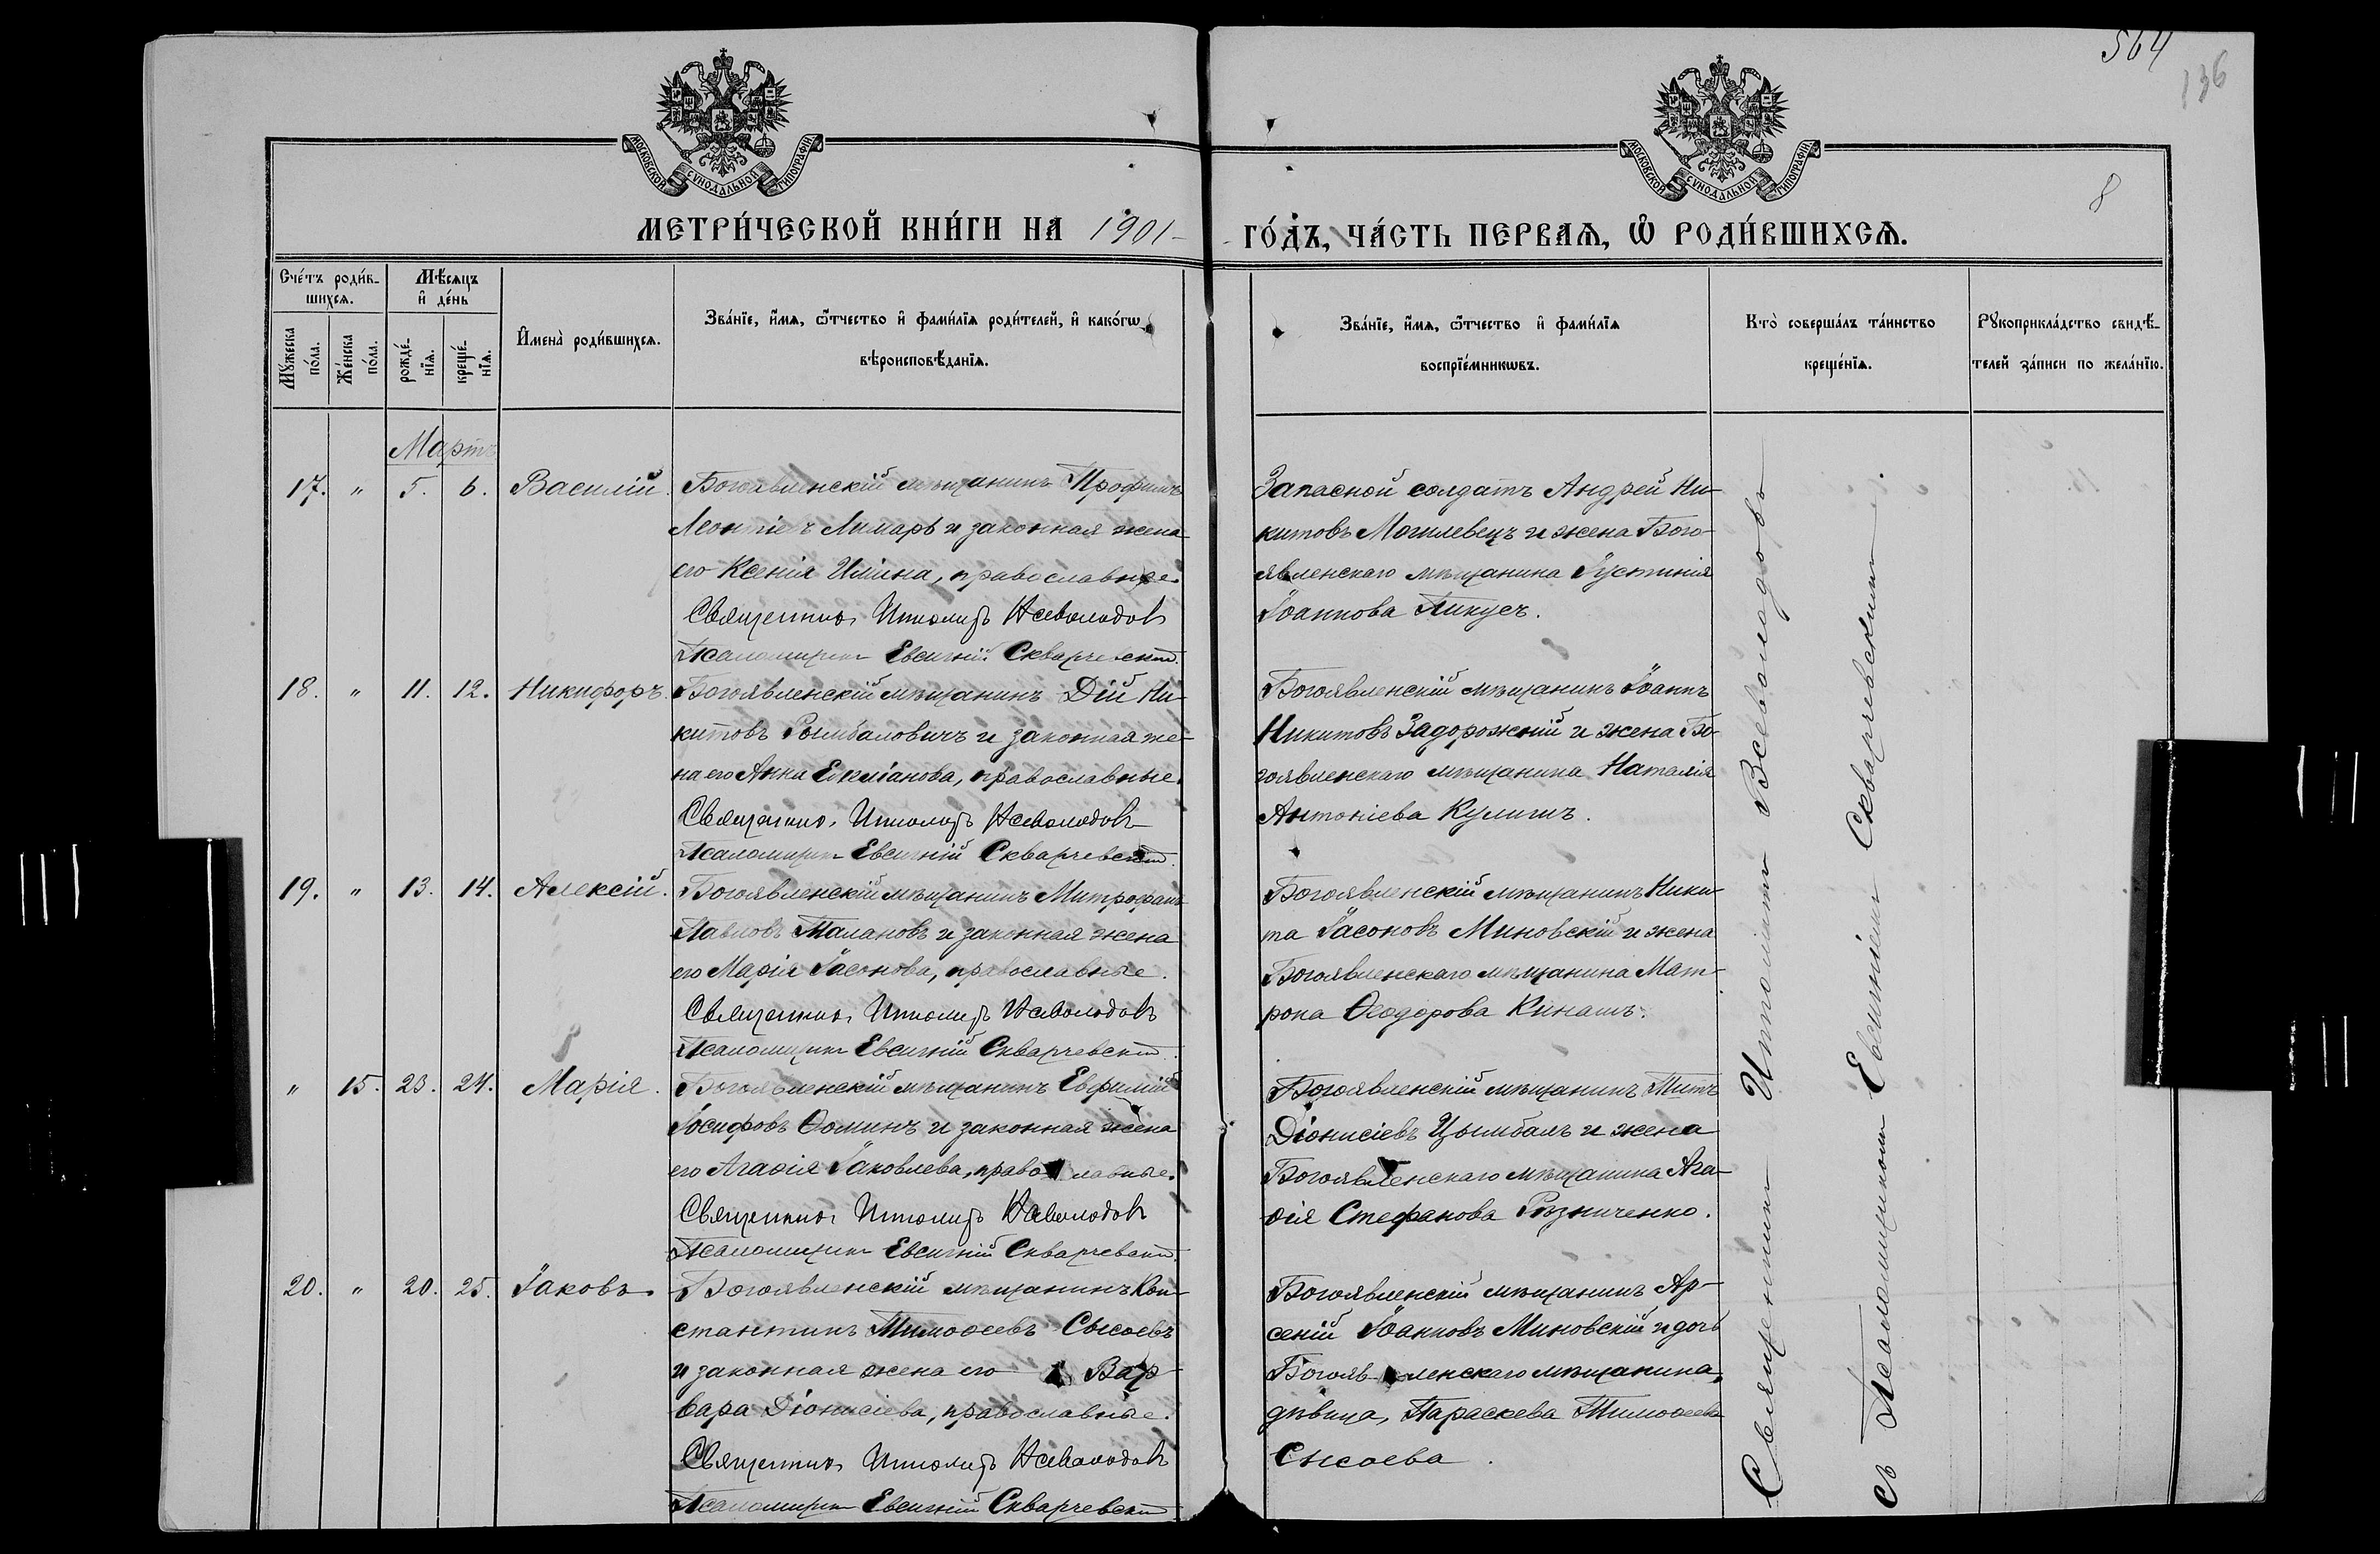 564
136
8
МОСКОВСКОЙ СѴНОДАЛЬНОЙ ТИПОГРАФІИ
МОСКОВСКОЙ СѴНОДАЛЬНОЙ ТИПОГРАФІИ
МЕТРИ́ЧЕСКОЙ КНИ́ГИ НА 1901 ГО́ДЪ, ЧА́СТЬ ПЕ́РВАѦ, Ѡ РОДИ́ВШИХСѦ.
Сче́тъ роди́в-
шихсѧ.
Мꙋ́жеска по́ла.
Же́нска по́ла.
Мѣ́сѧцъ
и҆ де́нь
рожде́-
нїѧ.
креще́-
нїѧ.
И҆мена̀ роди́вшихсѧ.
Зва́нїе, и҆́мѧ, ѻ҆́тчество и҆ фами́лїѧ роди́телей, и҆ како́гѡ
вѣроисповѣ́данїѧ.
Зва́нїе, и҆́мѧ, ѻ҆́тчество и҆ фами́лїѧ
воспрїе́мникѡвъ.
Кто̀ соверша́лъ та́инство
креще́нїѧ.
Рꙋкоприкла́дство свидѣ́-
телей за́писи по жела́нїю.
Мартъ
17. " 5. 6. Василій. Богоявленскій мѣщанинъ Трофимъ
Леонтіевъ Лимарь и законная жена
его Ксенія Иліина, православные.
Священникъ Ипполитъ Всеволодовъ
Псаломщикъ Евсигній Скварчевскій.
Запасной солдатъ Андрей Ни-
китовъ Могилевецъ и жена Бого-
явленскаго мѣщанина Іустинія
Іоаннова Пикусъ.
18. " 11. 12. Никифоръ. Богоявленскій мѣщанинъ Дій Ни-
китовъ и законная же-
на его Анна Емеліанова, православные.
Священникъ Ипполитъ Всеволодовъ
Псаломщикъ Евсигній Скварчевскій.
Богоявленскій мѣщанинъ Іоаннъ
Никитовъ Задорожній и жена Бо-
гоявленскаго мѣщанина Наталія
Антоніева Кулишъ.
19. " 13. 14. Алексій. Богоявленскій мѣщанинъ Митрофанъ
Павловъ Талановъ и законная жена
его Марія Іасонова, православные.
Священникъ Ипполитъ Всеволодовъ
Псаломщикъ Евсигній Скварчевскій.
Богоявленскій мѣщанинъ Ники-
та Іасоновъ Миновскій и жена
Богоявленскаго мѣщанина Мат-
рона Ѳеодорова Кинашъ.
" 15. 23. 24. Марія. Богоявленскій мѣщанинъ Евфимій
Іосифовъ Ѳоминъ и законная жена
его Агаѳія Іаковлева, православные.
Священникъ Ипполитъ Всеволодовъ
Псаломщикъ Евсигній Скварчевскій.
Богоявленскій мѣщанинъ Титъ
Діонисіевъ Цымбалъ и жена
Богоявленскаго мѣщанина Ага-
ѳія Стефанова Рѣзниченко.
20. " 20. 25. Іаковъ. Богоявленскій мѣщанинъ Кон-
стантинъ Тимоѳеевъ Сысоевъ
и законная жена его Вар-
вара Діонисіева, православные.
Священникъ Ипполитъ Всеволодовъ
Псаломщикъ Евсигній Скварчевскій
Богоявленскій мѣщанинъ Ар-
сеній Іоанновъ Миновскій и дочь
Богоявленскаго мѣщанина,
дѣвица, Параскева Тимоѳеева
Сысоева.
Священникъ Ипполитъ Всеволодовъ
съ Псаломщикомъ Евсигніемъ Скварчевскимъ.